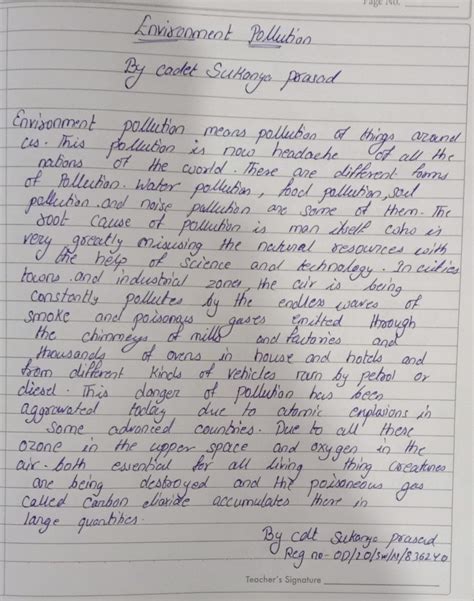 Page No.
Environment Pollution
By cadet Sukanya prasad
Environment pollution means pollution of things around
us. This pollution is now headache of all the
nations of the world. These are different forms
of Pollution. Water pollution, food pollution, soil
pollution and noise pollution are some of them. The
root cause of pollution is man itself who is
very greatly misusing the natural resources with
the help of science and technology. In cities
towns and industrial zones, the air is being
constantly pollutes by the endless waves of
smoke and poisonous gases emitted through
the chimneys of mills and factories and
thousands of ovens in house and hotels and
from different kinds of vehicles run by petrol or
diesel. This danger of pollution has been
aggrawated today due to atomic explosions in
some advanced countries. Due to all these
ozone in the upper space and oxygen in the
air. both essential for all living thing creatures
are being destroyed and the poisoneous gas
called carbon dioxide accumulates there in
large quantities.
By cdt Sukanya prasad
Reg no- OD/20/SW/N/836240
Teacher's Signature